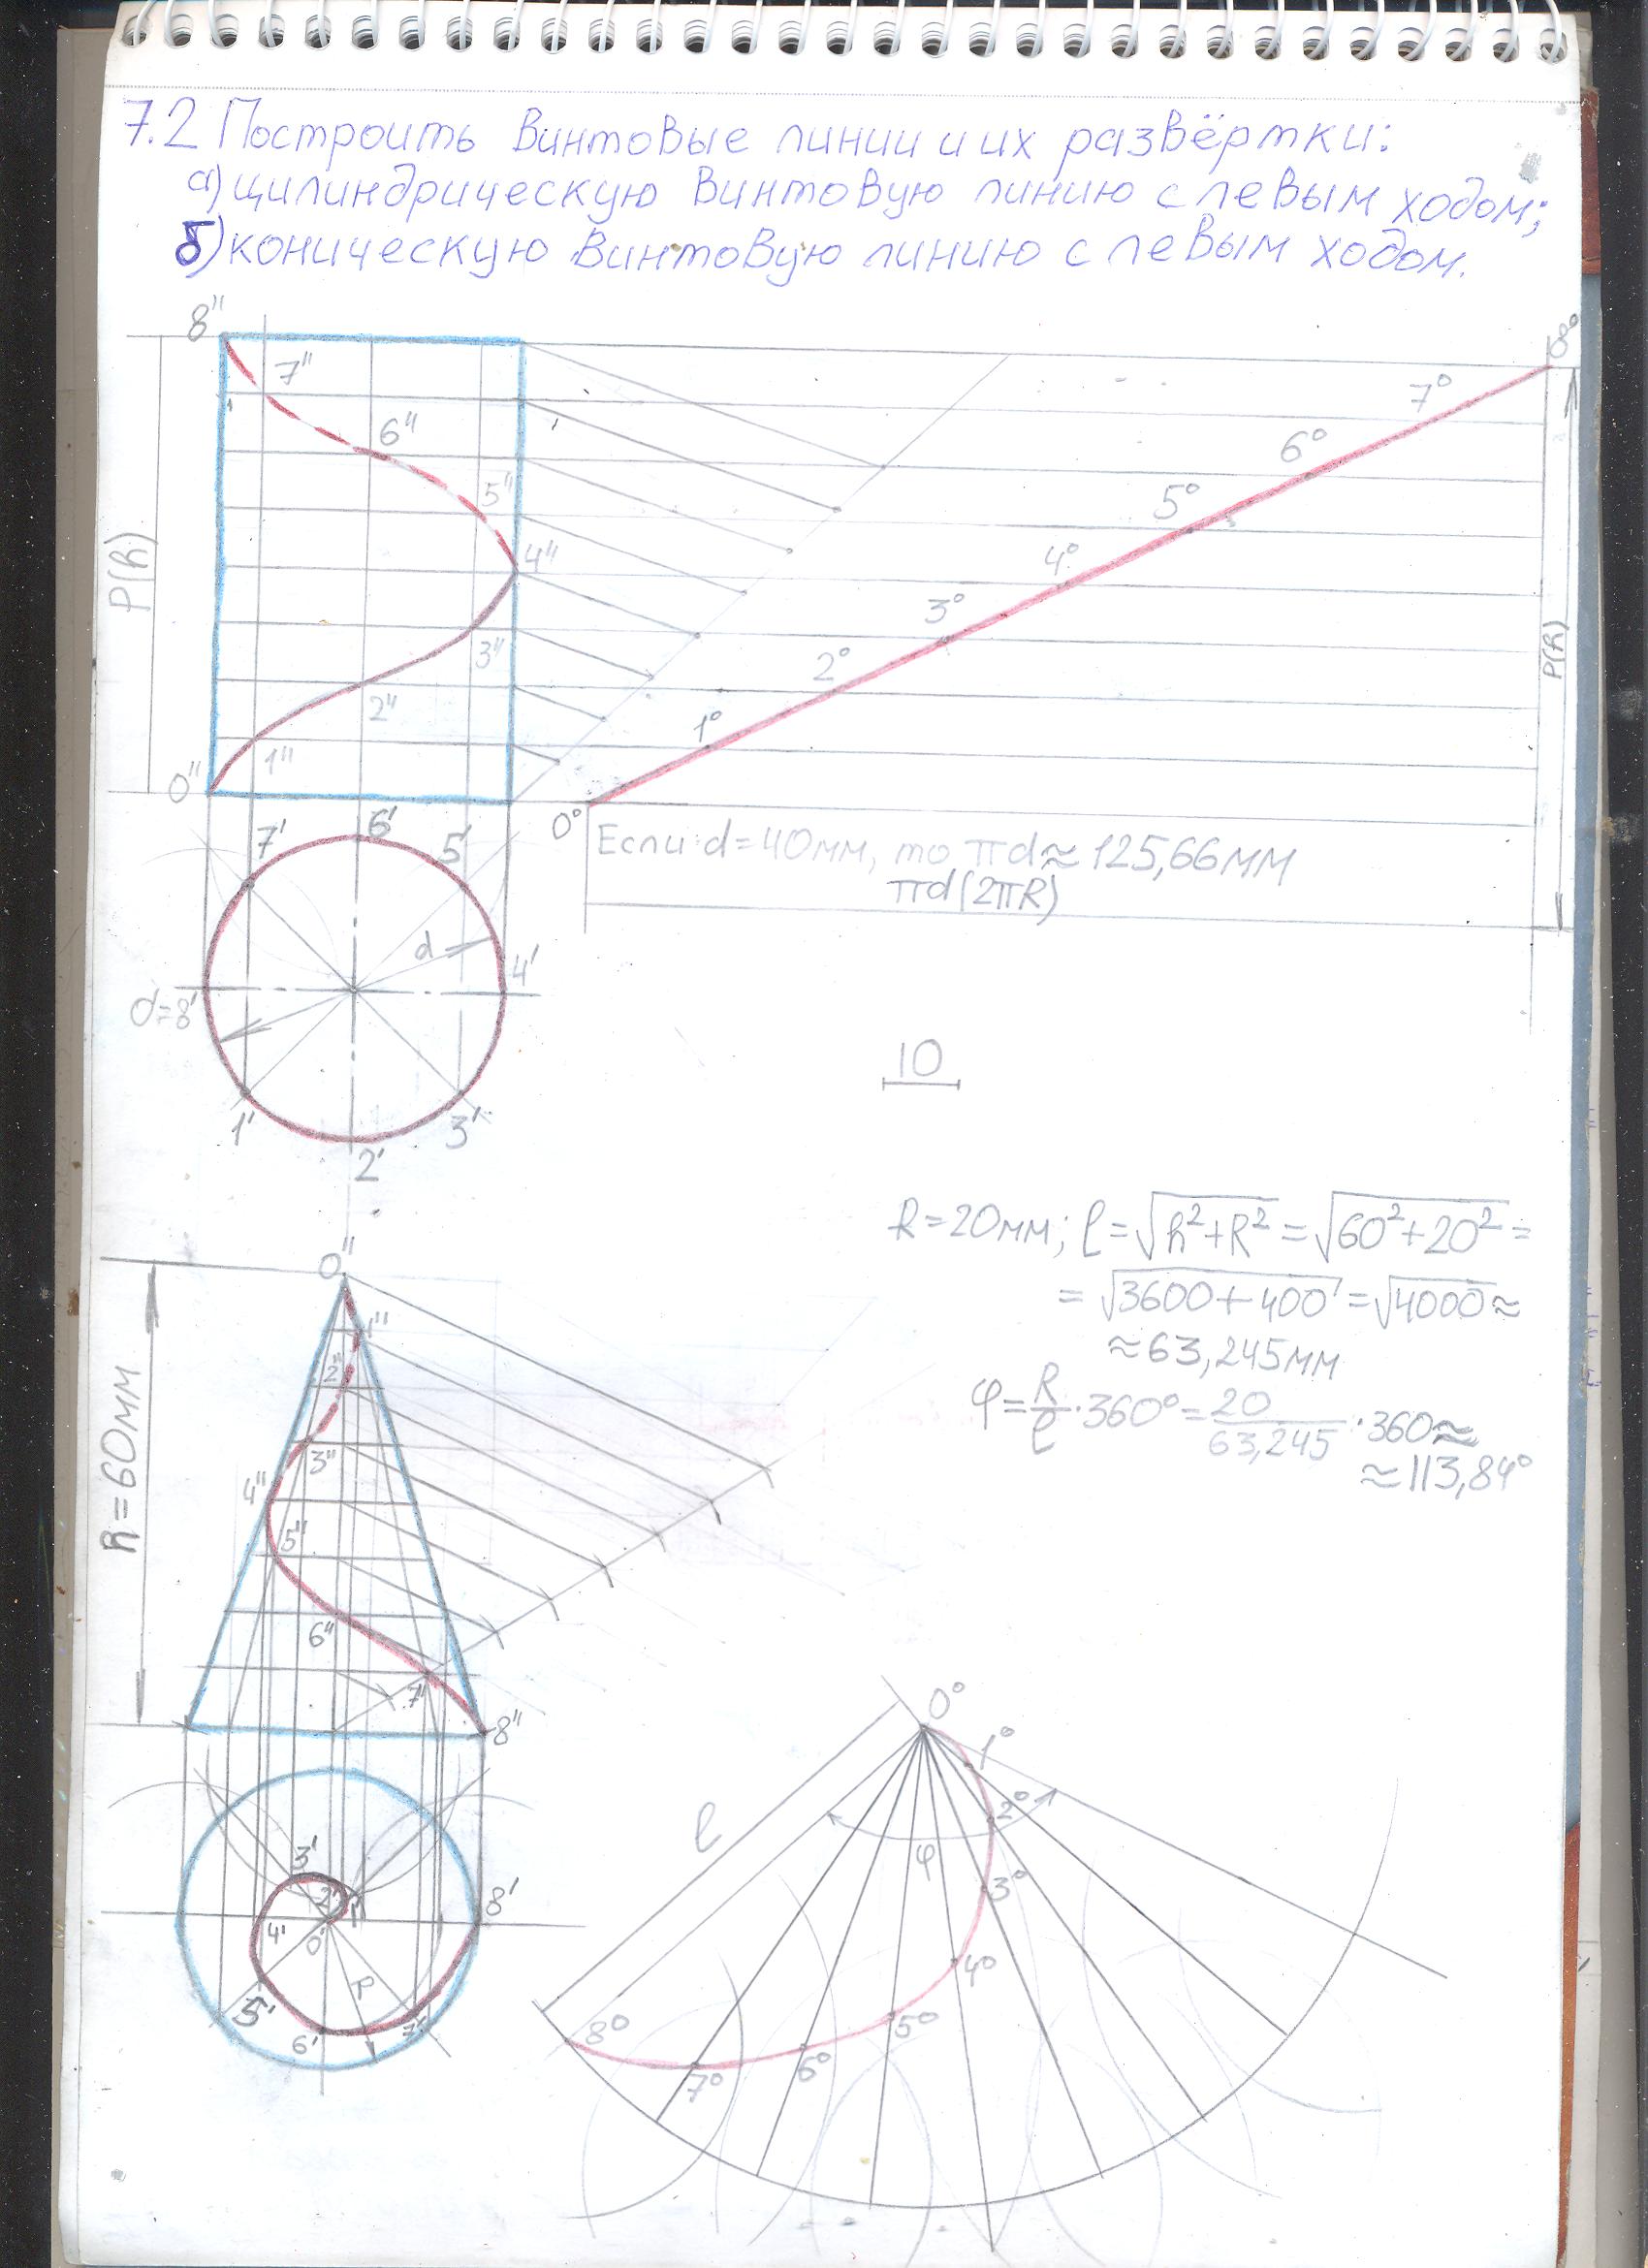 7.2 Построить винтовые линии и их развёртки:
а) цилиндрическую винтовую линию с левым ходом;
б) коническую винтовую линию с левым ходом.
8"
7"
6"
5"
4"
3"
2"
1"
0"
P(h)
8°
7°
6°
5°
4°
3°
2°
1°
0°
P(h)
Если d=40мм, то πd≈125,66мм
πd(2πR)
7'
6'
5'
d
4'
0'=8'
1'
3'
2'
10
R=20мм; ℓ=√h²+R²=√60²+20²=
=√3600+400=√4000≈
≈63,245мм
φ=R/ℓ·360°=20/63,245·360≈
≈113,84°
0"
1"
2"
3"
4"
5"
6"
7"
8"
h=60мм
3'
2'
1'
8'
4'
0'
P
5'
6'
7'
0°
1°
2°
ℓ
φ
3°
4°
5°
8°
6°
7°